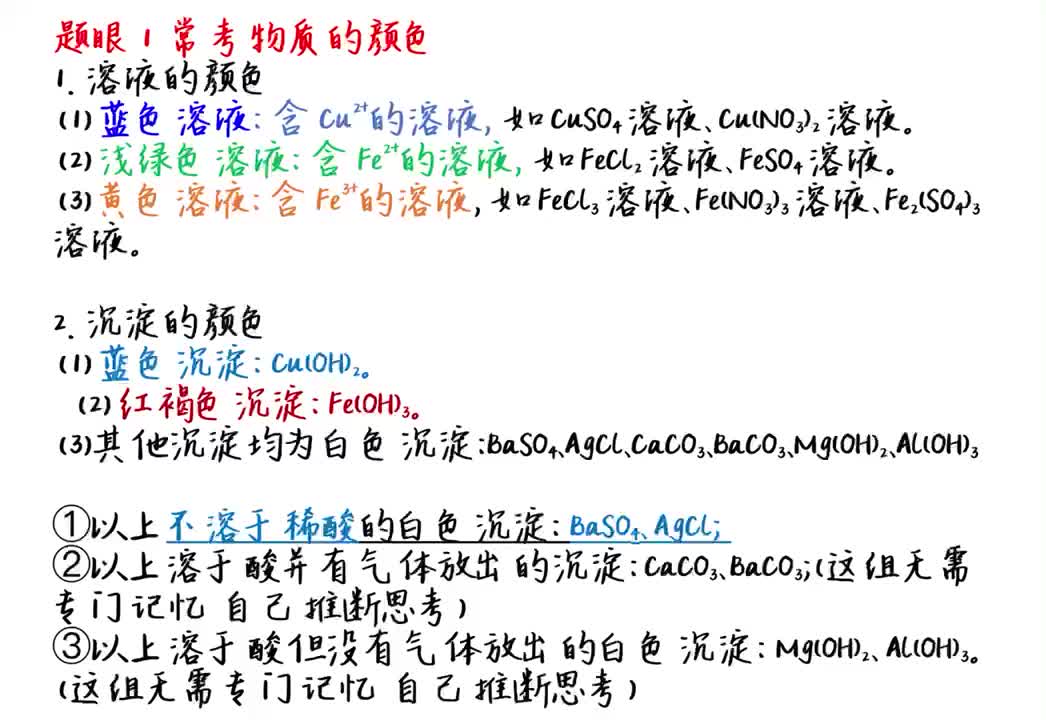 题眼1 常考物质的颜色
1. 溶液的颜色
(1) 蓝色溶液: 含Cu²⁺的溶液, 如CuSO₄溶液、Cu(NO₃)₂溶液。
(2) 浅绿色溶液: 含Fe²⁺的溶液, 如FeCl₂溶液、FeSO₄溶液。
(3) 黄色溶液: 含Fe³⁺的溶液, 如FeCl₃溶液、Fe(NO₃)₃溶液、Fe₂(SO₄)₃
溶液。
2. 沉淀的颜色
(1) 蓝色沉淀: Cu(OH)₂。
(2) 红褐色沉淀: Fe(OH)₃。
(3)其他沉淀均为白色沉淀:BaSO₄、AgCl、CaCO₃、BaCO₃、Mg(OH)₂、Al(OH)₃
①以上不溶于稀酸的白色沉淀: BaSO₄、AgCl;
②以上溶于酸并有气体放出的沉淀: CaCO₃、BaCO₃;(这组无需
专门记忆自己推断思考)
③以上溶于酸但没有气体放出的白色沉淀: Mg(OH)₂、Al(OH)₃。
(这组无需专门记忆自己推断思考)